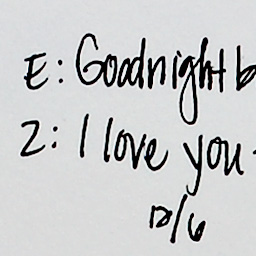 E: Goodnight b
Z: I love you
12/6